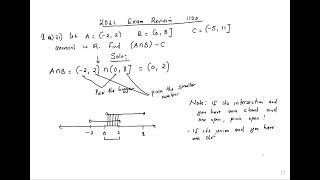 2021 Exam Revision 1120
Q1 a) ii) Let A = (-2, 2) B = (0, 8] C = (-5, 11]
in ℝ. Find (A∩B) - C
Soln:
A∩B = (-2, 2) ∩ (0, 8] = (0, 2)
Pick the bigger
pick the smaller
number
-2 0 2 8
Note: If its intersection and
you have one closed and
one open, pick open!
- if its union and you have
one